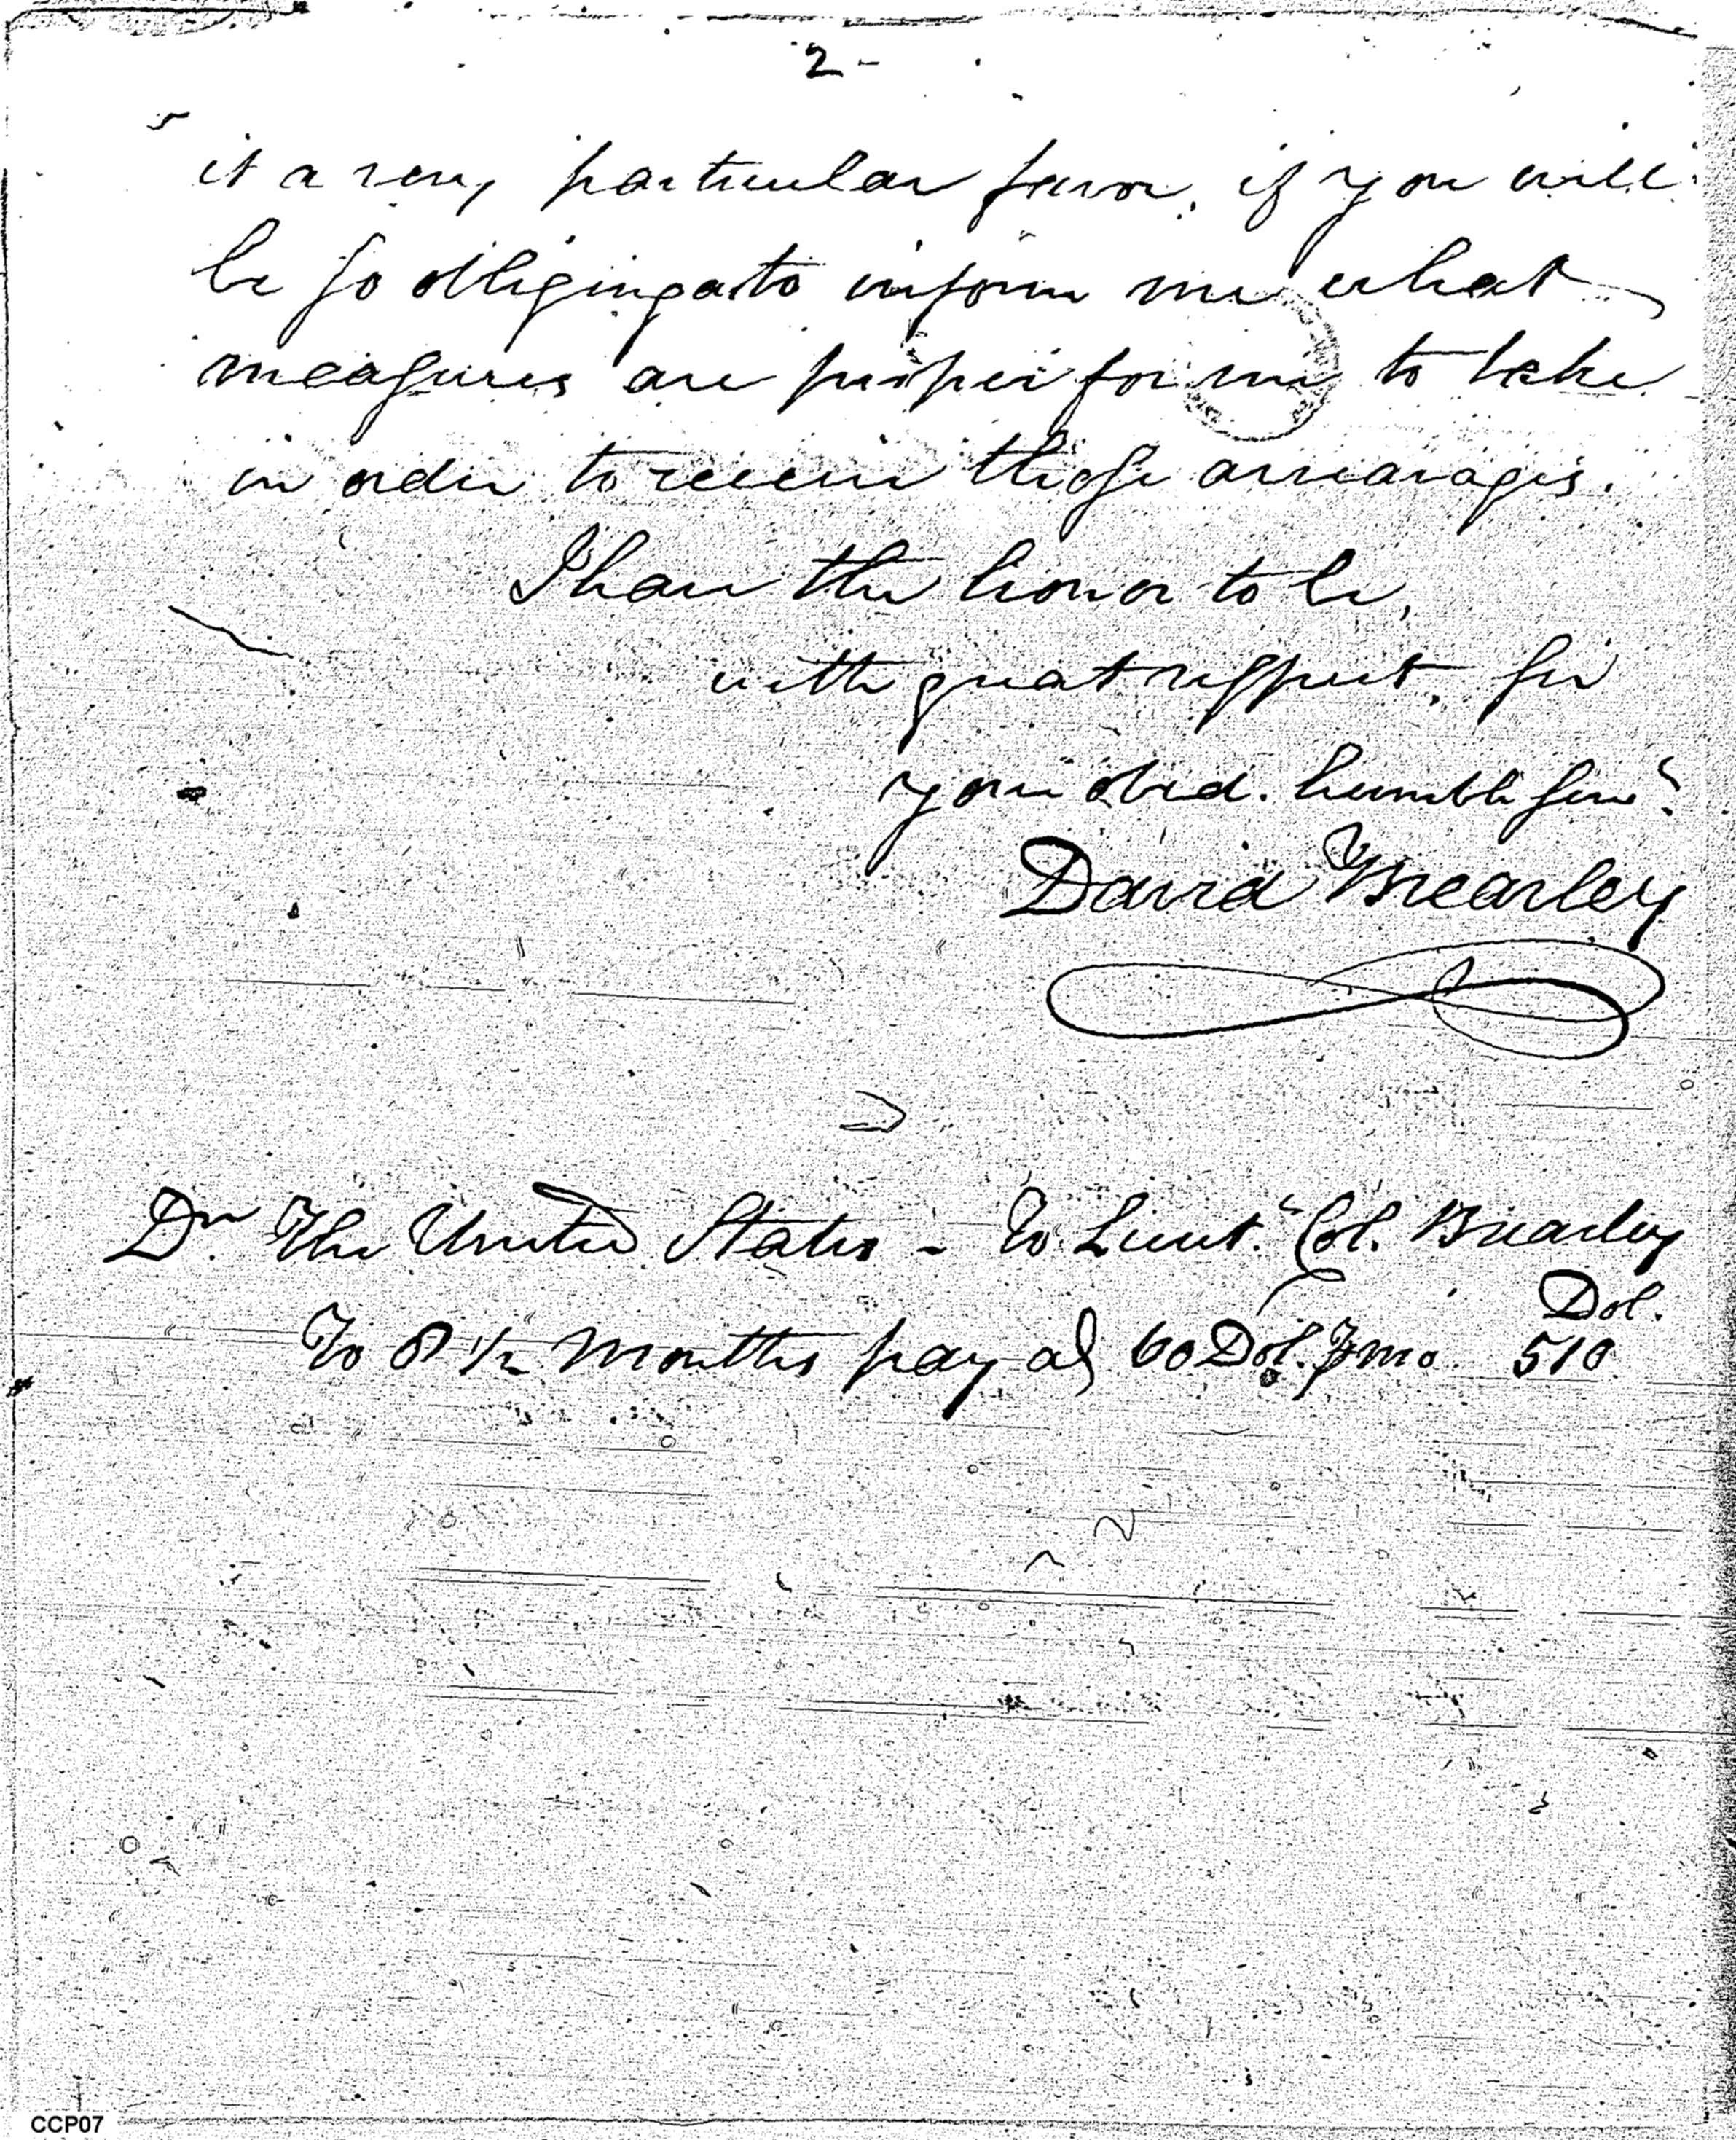 2 -
it a very particular favor, if you will
be ſo obliging as to inform me what
meaſures are proper for me to take
in order to receive thoſe arrearages.
I have the honor to be,
with great reſpect, ſir
your obed. humble ſerv.t
David Brearley
Dr. The United States - To Lieut. Col. Brearley
Dol.
To 8 1/2 Months pay at 60 Dol. ⅌ mo. 510
CCP07